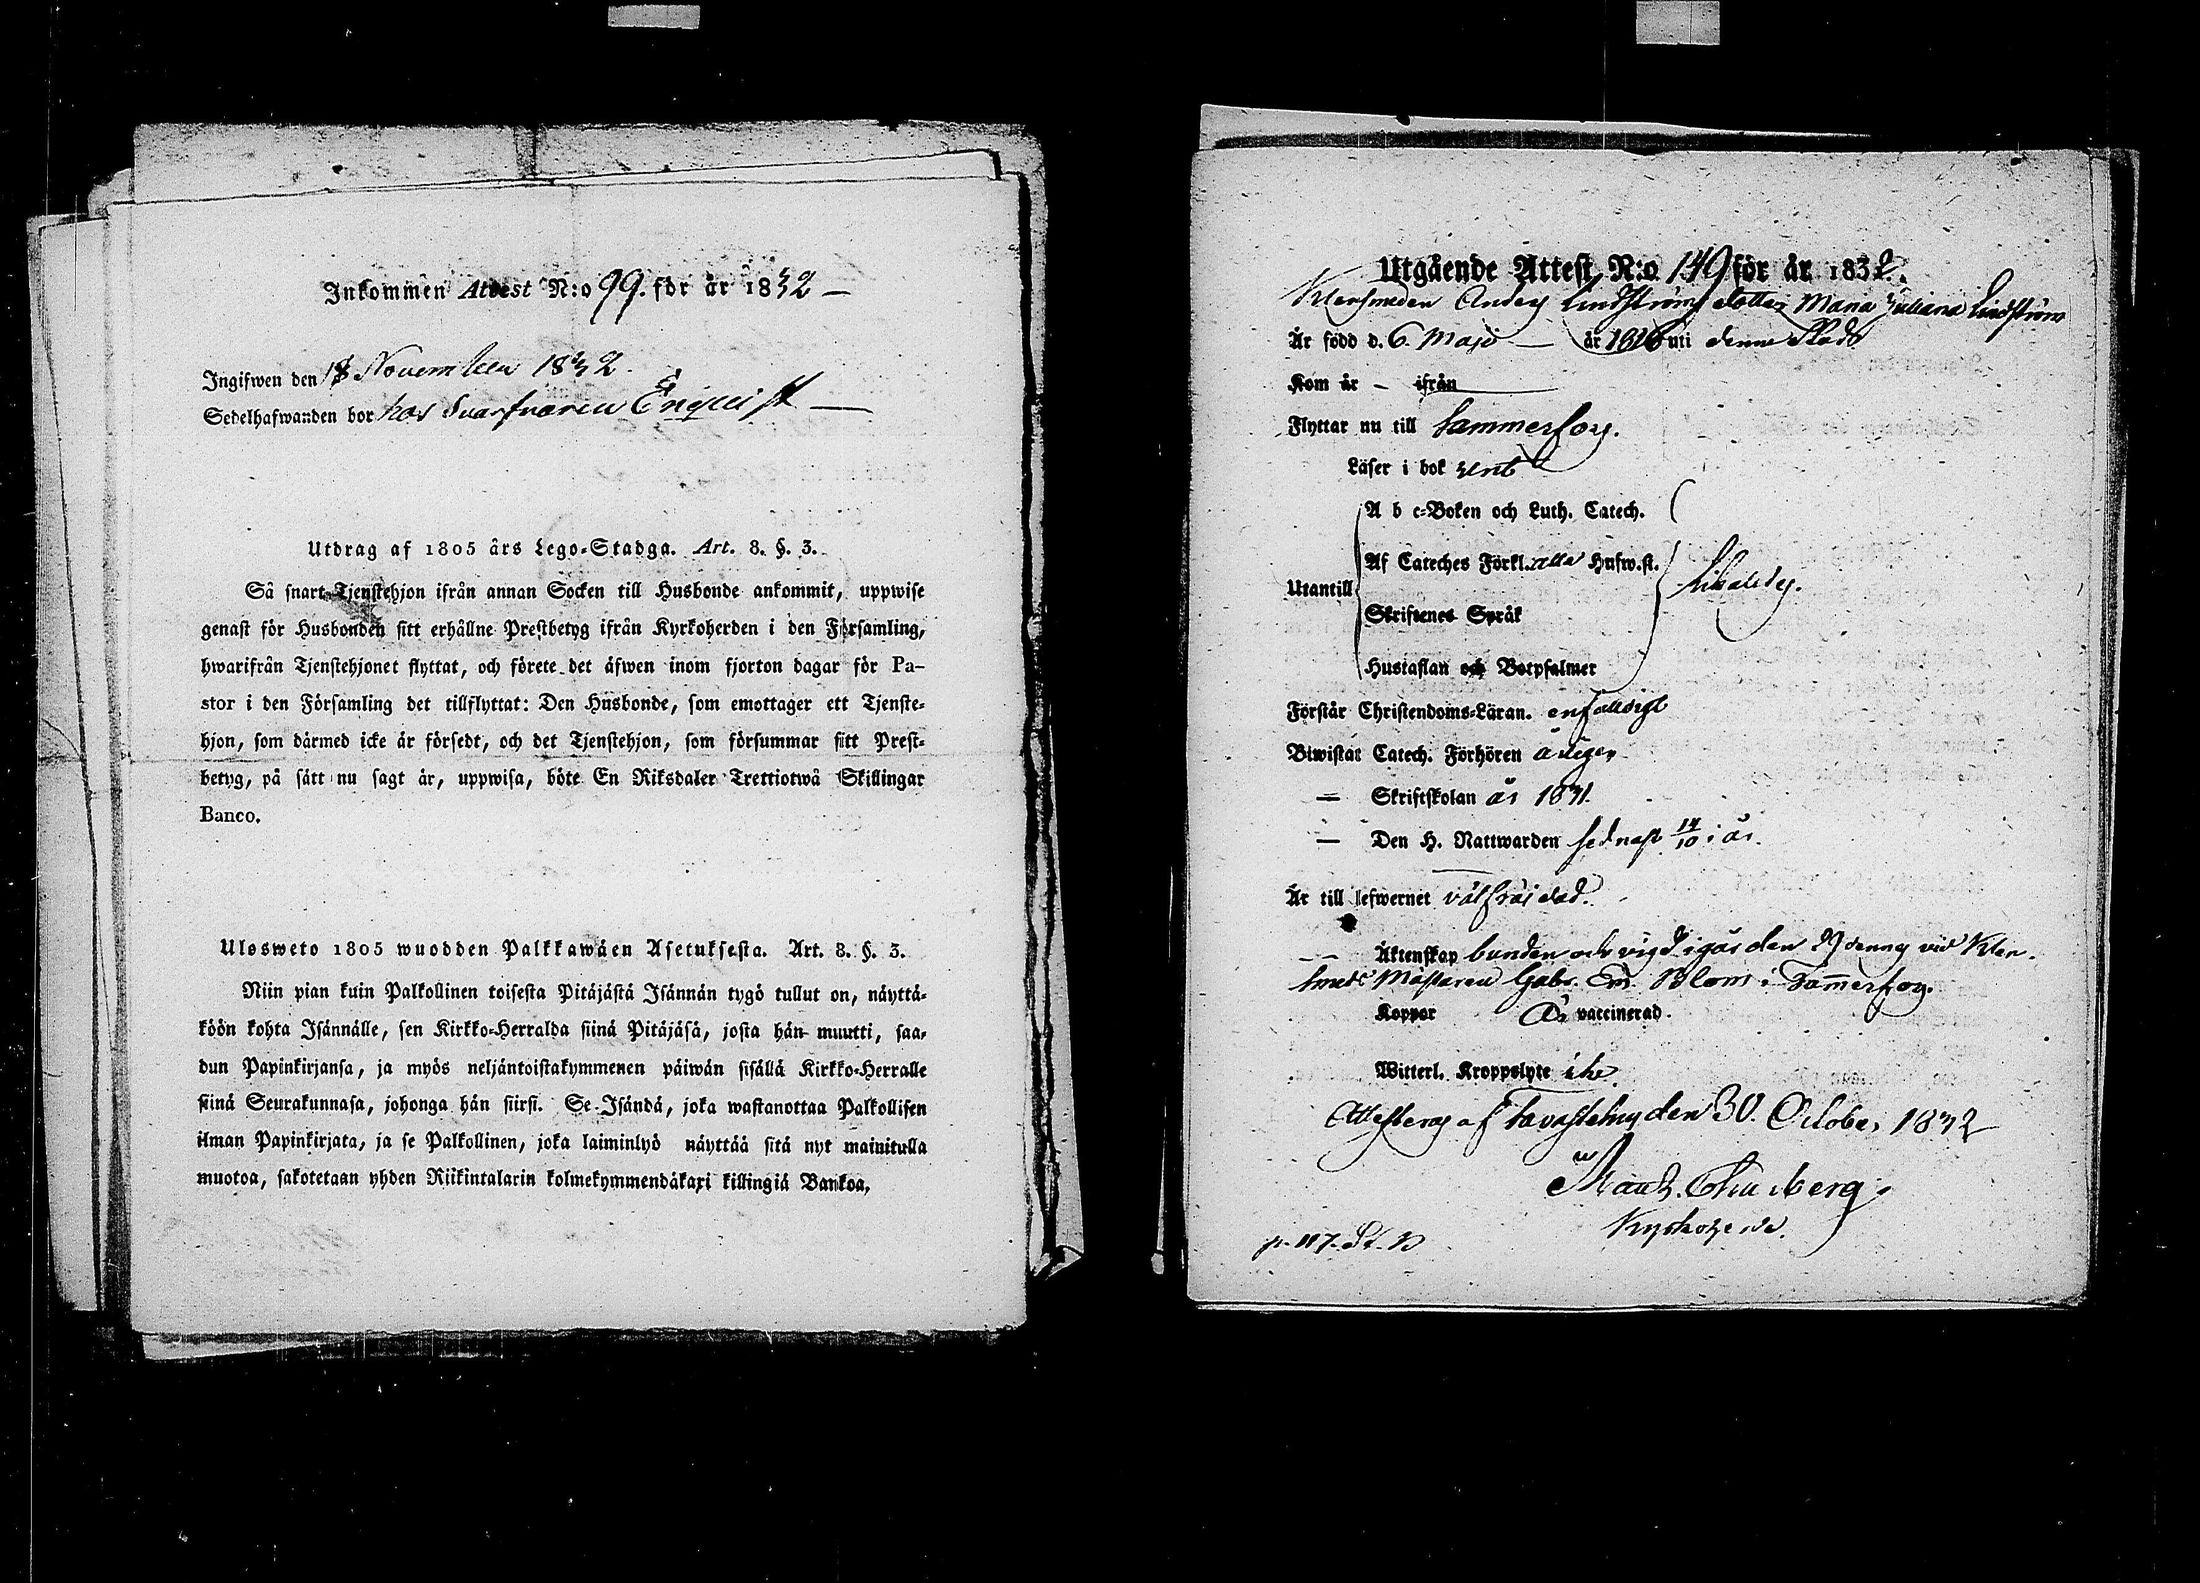 Inkommen Attest N:o 99. för år 1832 —
Ingifwen den 18 November 1832.
Sedelhafwanden bor hos Svarfvaren Enqvist —
Utdrag af 1805 års Lego-Stadga. Art. 8. §. 3.
Så snart Tjenstehjon ifrån annan Socken till Husbonde ankommit, uppwise
genast för Husbonden sitt erhållne Prestbetyg ifrån Kyrkoherden i den Församling,
hwarifrån Tjenstehjonet flyttat, och förete det äfwen inom fjorton dagar för Pa-
stor i den Församling det tillflyttat: Den Husbonde, som emottager ett Tjenste-
hjon, som därmed icke är försedt, och det Tjenstehjon, som försummar sitt Prest-
betyg, på sätt nu sagt är, uppwisa, böte En Riksdaler Trettiotwå Skillingar
Banco.
Ulosweto 1805 wuodden Palkkawäen Asetuksesta. Art. 8. §. 3.
Niin pian kuin Palkollinen toisesta Pitäjästä Isännän tygö tullut on, näyttä-
köön kohta Isännälle, sen Kirkko-Herralda siinä Pitäjäsä, josta hän muutti, saa-
dun Papinkirjansa, ja myös neljäntoistakymmenen päiwän sisällä Kirkko-Herralle
siinä Seurakunnasa, johonga hän siirsi. Se Isändä, joka wastanottaa Palkollisen
ilman Papinkirjata, ja se Palkollinen, joka laiminlyö näyttää sitä nyt mainitulla
muotoa, sakotetaan yhden Riikintalarin kolmekymmendäkaxi killingiä Bankoa.
Utgående Attest N:o 149 för år 1832.
Klensmeden Anders Lindströms dotter Maria Juliana Lindström
Är född d. 6 Maji — år 1816 uti denna Stad
Kom år — ifrån
Flyttar nu till Tammerfors.
Läser i bok rent
A b c-Boken och Luth. Catech.
Af Cateches Förkl. alla Hufw.st.
Utantill
Skriftenes Språk
Hustaflan och Botpsalmer
Förstår Christendoms-Läran. enfaldigt
Biwistat Catech. Förhören årligen
— Skriftskolan år 1831.
— Den H. Nattwarden sednast 14/10 i år.
Är till lefwernet välfräjdad.
— Äktenskap bunden och vigd igår den 29 dennes vid Klen-
smeds Mästaren Gabr. Em. Blom i Tammerfors.
Koppor Är vaccinerad.
Witterl. Kroppslyte icke
Attesteras af Tavastehus den 30. October 1832
Kyrkoherde.
p. 117. St. B